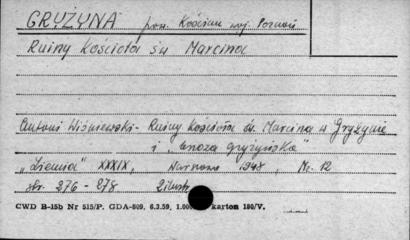 GRYŻYNA pow. Kościan woj. Poznań
Ruiny Kościoła św Marcina
Antoni Wiśniewski - Ruiny Kościoła św. Marcina w Gryżynie
i „brzoza gryżyńska"
„Ziemia" XXXIX, Warszawa 1948, Nr. 12
str. 276 - 278 Ziłustr.
CWD B-15b Nr 515/P. GDA-809, 6.3.59, 1.000 karton 180/V.